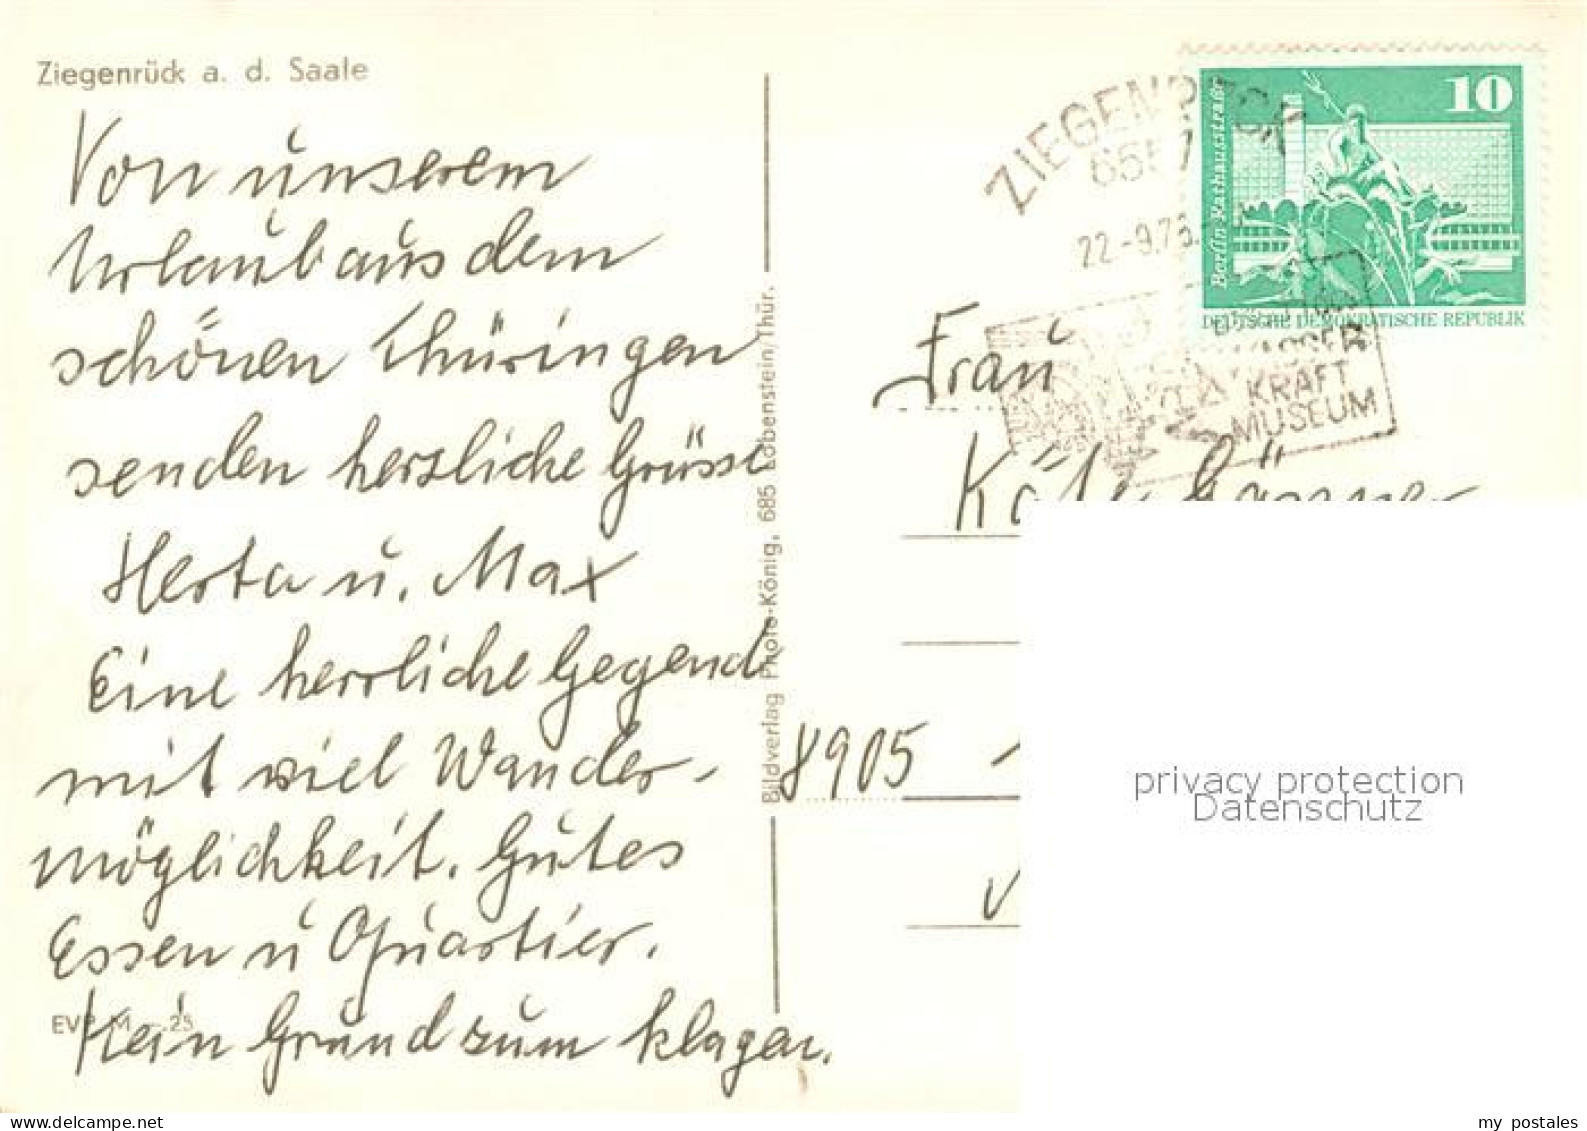 Ziegenrück a. d. Saale
Von unserem
Urlaub aus dem
schönen Thüringen
senden herzliche Grüsse
Herta u. Max
Eine herrliche Gegend
mit viel Wander-
möglichkeit. Gutes
Essen u Quartier.
Kein Grund zum klagen.
EVP M -.25
Bildverlag Photo-König, 685 Lobenstein/Thür.
ZIEGENRÜCK
6557
22.-9.76
WASSER
KRAFT
MUSEUM
10
Berlin · Rathausstraße
DEUTSCHE DEMOKRATISCHE REPUBLIK
Frau
8905
privacy protection
Datenschutz
my postales